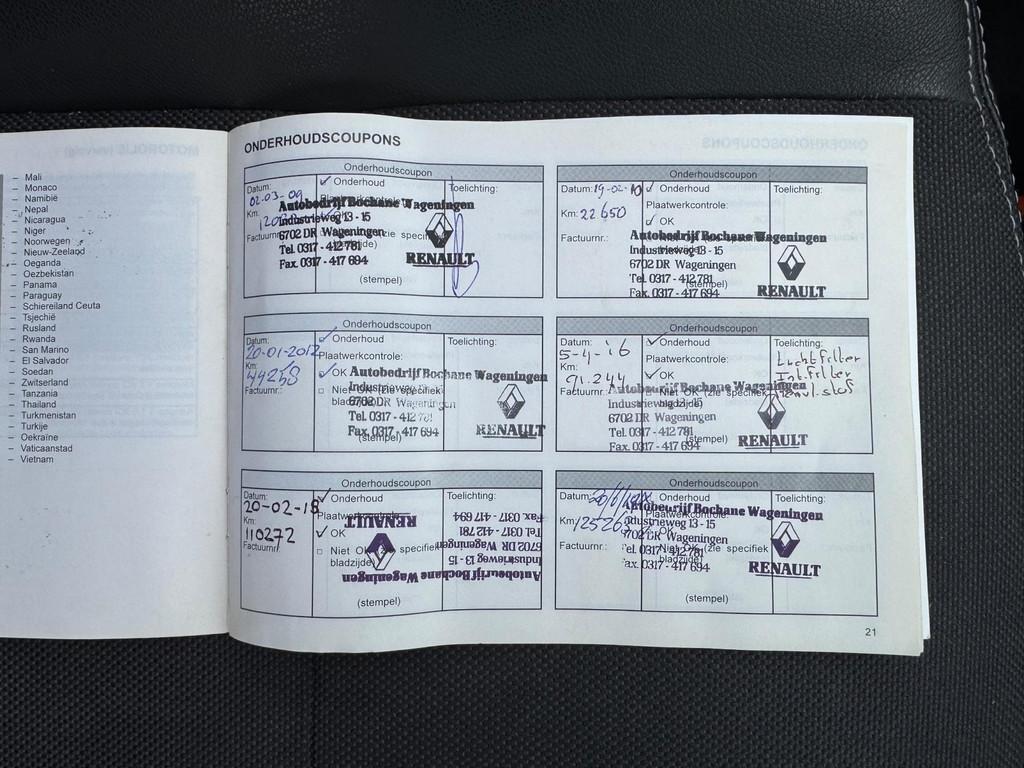 – Mali
– Monaco
– Namibië
– Nepal
– Nicaragua
– Niger
– Noorwegen
– Nieuw-Zeeland
– Oeganda
– Oezbekistan
– Panama
– Paraguay
– Schiereiland Ceuta
– Tsjechië
– Rusland
– Rwanda
– San Marino
– El Salvador
– Soedan
– Zwitserland
– Tanzania
– Thailand
– Turkmenistan
– Turkije
– Oekraïne
– Vaticaanstad
– Vietnam
ONDERHOUDSCOUPONS
Onderhoudscoupon
Datum:
02-03-09
Km:
Factuurnr.:
✓ Onderhoud
Toelichting:
Autobedrijf Bochane Wageningen
Industrieweg 13 - 15
6702 DR Wageningen
Tel. 0317 - 412 781
Fax. 0317 - 417 694
RENAULT
(stempel)
Onderhoudscoupon
Datum: 19-02-10
Km: 22650
Factuurnr.:
✓ Onderhoud
Plaatwerkcontrole:
✓ OK
Toelichting:
Autobedrijf Bochane Wageningen
Industrieweg 13 - 15
6702 DR Wageningen
Tel. 0317 - 412 781
Fax. 0317 - 417 694
RENAULT
(stempel)
Onderhoudscoupon
Datum:
20-01-2012
Km:
44258
Factuurnr.:
✓ Onderhoud
Plaatwerkcontrole:
✓ OK
□ Niet OK (zie specifiek
bladzijde)
Toelichting:
Autobedrijf Bochane Wageningen
Industrieweg 13 - 15
6702 DR Wageningen
Tel. 0317 - 412 781
Fax. 0317 - 417 694
RENAULT
(stempel)
Onderhoudscoupon
Datum:
5-4-16
Km:
91.244
Factuurnr.:
✓ Onderhoud
Plaatwerkcontrole:
✓ OK
□ Niet OK (zie specifiek
bladzijde)
Toelichting:
Luchtfilter
Int.filter
Autobedrijf Bochane Wageningen
Industrieweg 13 - 15
6702 DR Wageningen
Tel. 0317 - 412 781
Fax. 0317 - 417 694
RENAULT
(stempel)
Onderhoudscoupon
Datum:
20-02-18
Km:
110272
Factuurnr.:
✓ Onderhoud
Plaatwerkcontrole:
✓ OK
□ Niet OK (zie specifiek
bladzijde)
Toelichting:
Autobedrijf Bochane Wageningen
Industrieweg 13 - 15
6702 DR Wageningen
Tel. 0317 - 412 781
Fax. 0317 - 417 694
RENAULT
(stempel)
Onderhoudscoupon
Datum:
Km: 125263
Factuurnr.:
Onderhoud
Plaatwerkcontrole:
OK
Niet OK (zie specifiek
bladzijde)
Toelichting:
Autobedrijf Bochane Wageningen
Industrieweg 13 - 15
6702 DR Wageningen
Tel. 0317 - 412 781
Fax. 0317 - 417 694
RENAULT
(stempel)
21